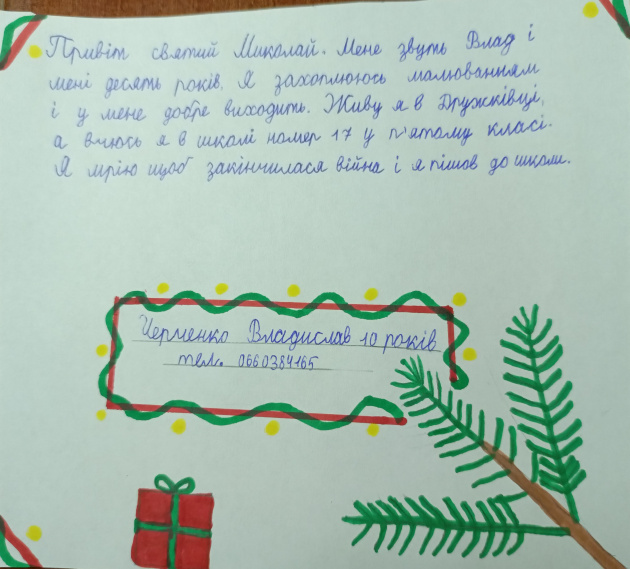 Привіт святий Миколай. Мене звуть Влад і
мені десять років. Я захоплююсь малюванням
і у мене добре виходить. Живу я в Дружківці,
а вчюсь я в школі номер 17 у п'ятому класі.
Я мрію щоб закінчилася війна і я пішов до школи.
Черненко Владислав 10 років
тел. 0660384165